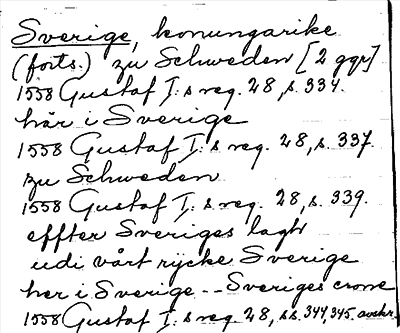 Sverige, konungarike
(forts.) zu Schweden [2 ggr]
1558 Gustaf I:s reg. 28, s. 334.
här i Sverige
1558 Gustaf I:s reg. 28, s. 337.
zu Schweden
1558 Gustaf I:s reg. 28, s. 339.
effter Sveriges lagh
udi vårt rijcke Sverige
her i Sverige -- Sveriges crone
1558 Gustaf I:s reg. 28, ss. 344, 345. avskr.